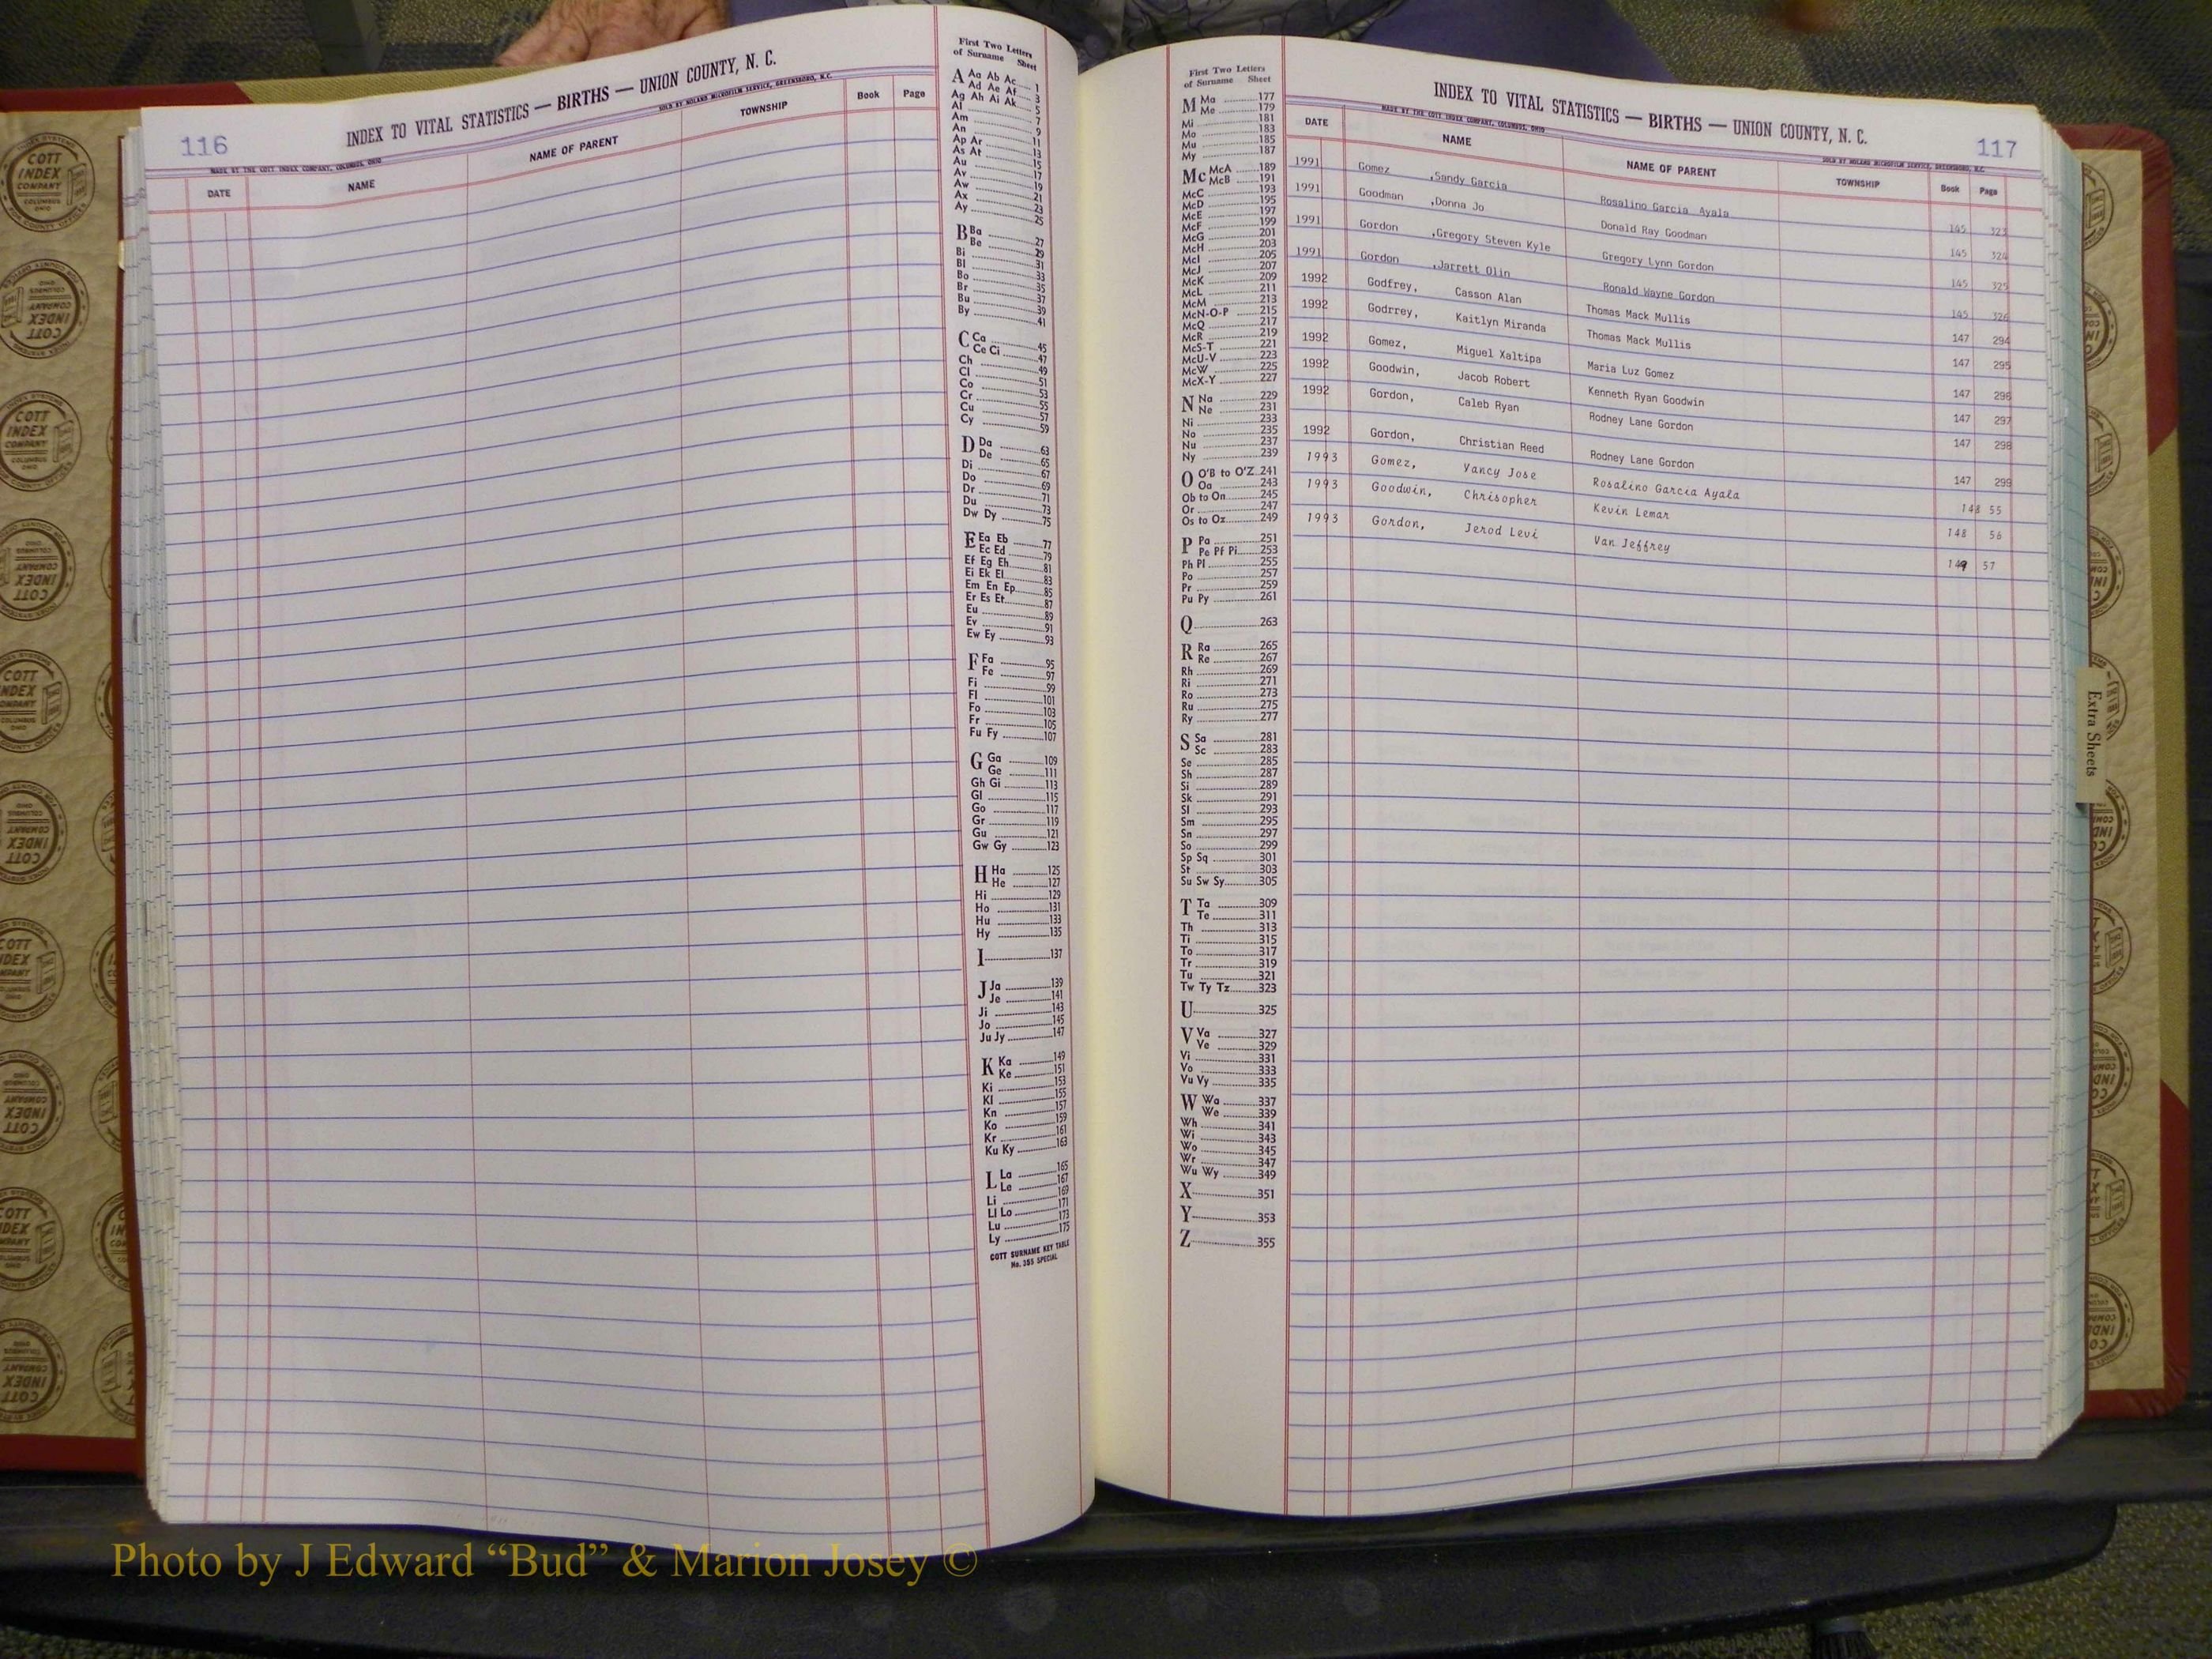 116
INDEX TO VITAL STATISTICS — BIRTHS — UNION COUNTY, N. C.
MADE BY THE COTT INDEX COMPANY, COLUMBUS, OHIO
SOLD BY NOLAND MICROFILM SERVICE, GREENSBORO, N.C.
DATE NAME NAME OF PARENT TOWNSHIP Book Page
First Two Letters
of Surname Sheet
A Aa Ab Ac 1
Ad Ae Af 3
Ag Ah Ai Ak 5
Al 7
Am 9
An 11
Ap Ar 13
As At 15
Au 17
Av 19
Aw 21
Ax 23
Ay 25
B Ba 27
Be 29
Bi 31
Bl 33
Bo 35
Br 37
Bu 39
By 41
C Ca 45
Ce Ci 47
Ch 49
Cl 51
Co 53
Cr 55
Cu 57
Cy 59
D Da 63
De 65
Di 67
Do 69
Dr 71
Du 73
Dw Dy 75
E Ea Eb 77
Ec Ed 79
Ef Eg Eh 81
Ei Ek El 83
Em En Ep 85
Er Es Et 87
Eu 89
Ev 91
Ew Ey 93
F Fa 95
Fe 97
Fi 99
Fl 101
Fo 103
Fr 105
Fu Fy 107
G Ga 109
Ge 111
Gh Gi 113
Gl 115
Go 117
Gr 119
Gu 121
Gw Gy 123
H Ha 125
He 127
Hi 129
Ho 131
Hu 133
Hy 135
I 137
J Ja 139
Je 141
Ji 143
Jo 145
Ju Jy 147
K Ka 149
Ke 151
Ki 153
Kl 155
Kn 157
Ko 159
Kr 161
Ku Ky 163
L La 165
Le 167
Li 169
Ll Lo 171
Lu 173
Ly 175
COTT SURNAME KEY TABLE
No. 355 SPECIAL
First Two Letters
of Surname Sheet
M Ma 177
Me 179
Mi 181
Mo 183
Mu 185
My 187
Mc McA 189
McB 191
McC 193
McD 195
McE 197
McF 199
McG 201
McH 203
McI 205
McJ 207
McK 209
McL 211
McM 213
McN-O-P 215
McQ 217
McR 219
McS-T 221
McU-V 223
McW 225
McX-Y 227
N Na 229
Ne 231
Ni 233
No 235
Nu 237
Ny 239
O O'B to O'Z 241
Oa 243
Ob to On 245
Or 247
Os to Oz 249
P Pa 251
Pe Pf Pi 253
Ph Pl 255
Po 257
Pr 259
Pu Py 261
Q 263
R Ra 265
Re 267
Rh 269
Ri 271
Ro 273
Ru 275
Ry 277
S Sa 281
Sc 283
Se 285
Sh 287
Si 289
Sk 291
Sl 293
Sm 295
Sn 297
So 299
Sp Sq 301
St 303
Su Sw Sy 305
T Ta 309
Te 311
Th 313
Ti 315
To 317
Tr 319
Tu 321
Tw Ty Tz 323
U 325
V Va 327
Ve 329
Vi 331
Vo 333
Vu Vy 335
W Wa 337
We 339
Wh 341
Wi 343
Wo 345
Wr 347
Wu Wy 349
X 351
Y 353
Z 355
INDEX TO VITAL STATISTICS — BIRTHS — UNION COUNTY, N. C.
117
MADE BY THE COTT INDEX COMPANY, COLUMBUS, OHIO
SOLD BY NOLAND MICROFILM SERVICE, GREENSBORO, N.C.
DATE NAME NAME OF PARENT TOWNSHIP Book Page
1991 Gomez ,Sandy Garcia Rosalino Garcia Ayala 145 323
1991 Goodman ,Donna Jo Donald Ray Goodman 145 324
1991 Gordon ,Gregory Steven Kyle Gregory Lynn Gordon 145 325
1991 Gordon ,Jarrett Olin Ronald Wayne Gordon 145 326
1992 Godfrey, Casson Alan Thomas Mack Mullis 147 294
1992 Godrrey, Kaitlyn Miranda Thomas Mack Mullis 147 295
1992 Gomez, Miguel Xaltipa Maria Luz Gomez 147 296
1992 Goodwin, Jacob Robert Kenneth Ryan Goodwin 147 297
1992 Gordon, Caleb Ryan Rodney Lane Gordon 147 298
1992 Gordon, Christian Reed Rodney Lane Gordon 147 299
1993 Gomez, Yancy Jose Rosalino Garcia Ayala 148 55
1993 Goodwin, Chrisopher Kevin Lemar 148 56
1993 Gordon, Jerod Levi Van Jeffrey 149 57
Extra Sheets
COTT
INDEX
COMPANY
COLUMBUS
OHIO
Photo by J Edward “Bud” & Marion Josey ©